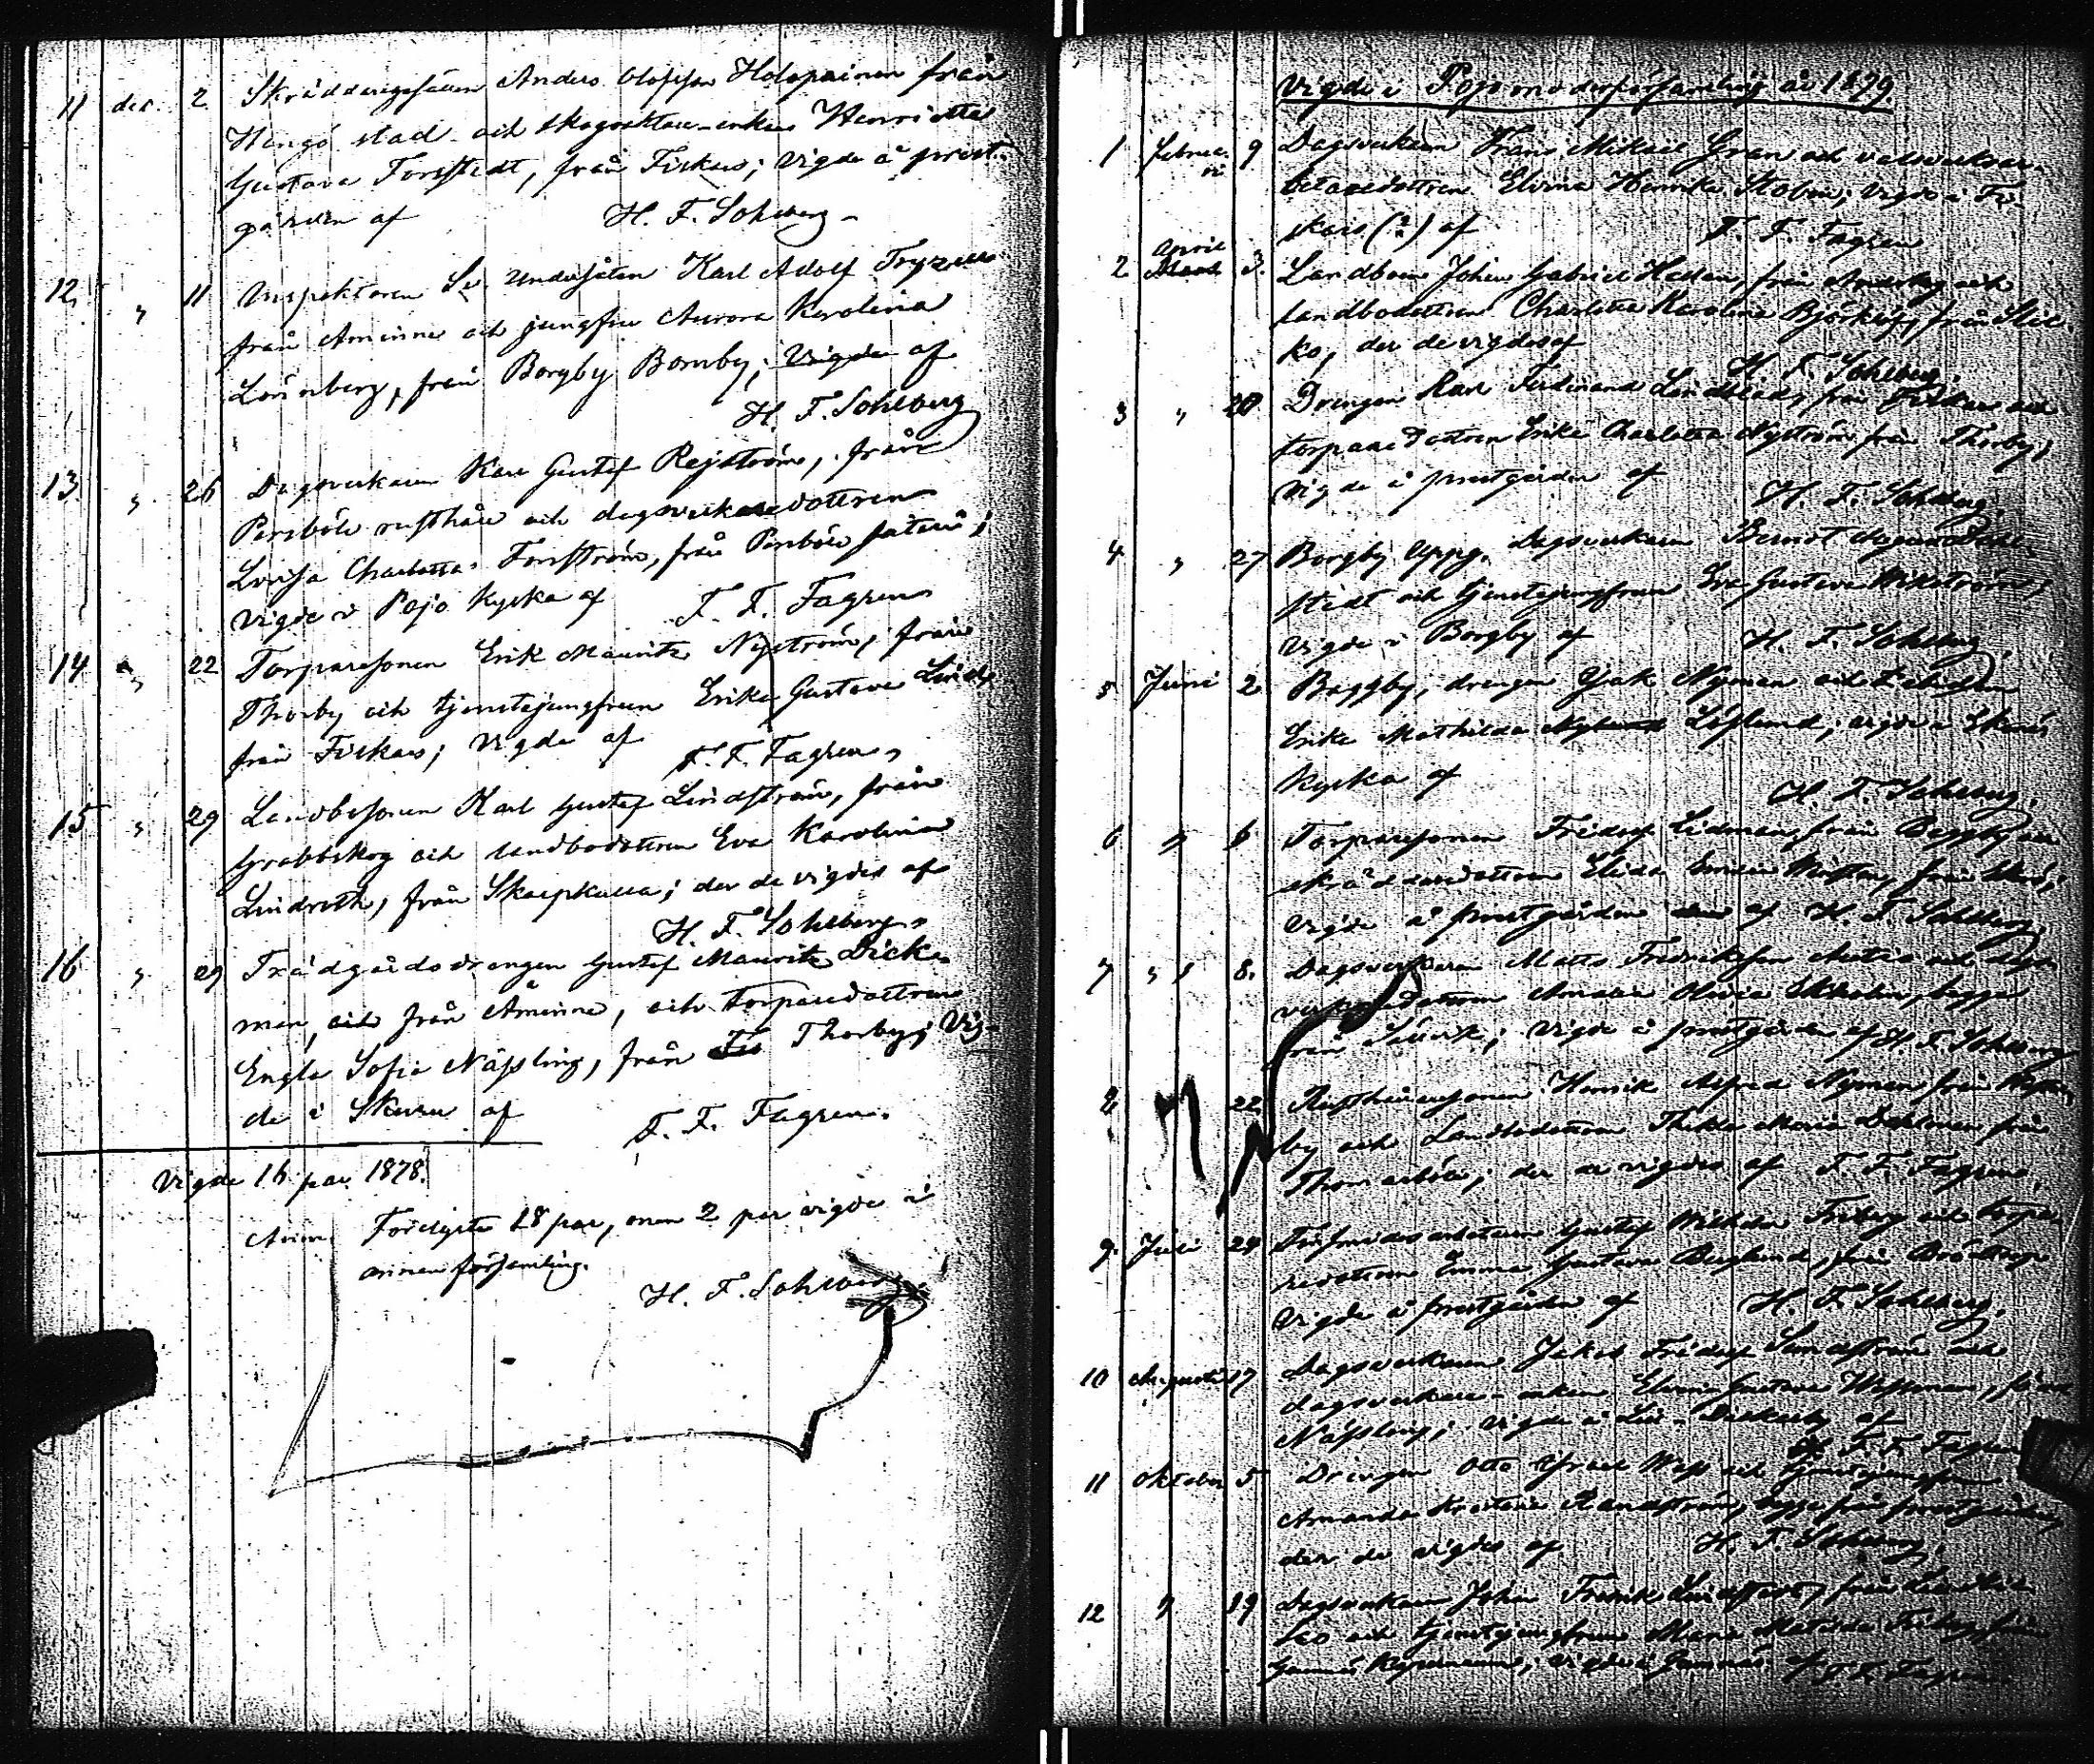 11 dec. 2 Skräddaregesällen Anders Olofsson Holopainen från
Hangö stad och skogvaktare-enkan Henrietta
Gustava Forsstedt, från Fiskars; vigde å prest-
gården af H. F. Sohlberg
12 " 11 Inspektoren Sv. Undersåten Karl Adolf
från Åminne och jungfru Aurora Karolina
Lönnberg, från Borgby Bomby; Vigde af
H. F. Sohlberg
13 " 26 Dagsverkaren Karl Gustaf Rejström, från
Persböle rusthåll och dagsverkaredottren
Lovisa Charlotta Forsström, från Persböle säteri;
vigde i Pojo kyrka af F. F. Fagrén
14 " 22 Torparesonen Erik Mauritz Nyström, från
Thorby och tjenstejungfrun Erika Gustava Lindh
från Fiskars; vigde af
F. F. Fagrén,
15 " 29 Landbosonen Karl Gustaf Lindström, från
Grabbskog och landbodottren Eva Karolina
Lindroth, från Skarpkulla; der de vigdes af
H. F. Sohlberg,
16 " 29 Trädgårdsdrengen Gustaf Mauritz Dick-
man, och från Åminne, och torparedottren
Engla Sofia Näsling, från Fis Thorby; Vig-
de i Skuru af
F. F. Fagrén.
Vigde 16 par 1878.
Anm. Förelyste 18 par, men 2 par vigde i
annan församling.
H. F. Sohlberg
Vigde i Pojo moderförsamling år 1879.
1 Februari 9 Dagsverkaren Frans Mikael Gran och valsverksar-
betaredottren Elvira Henrika Holm; vigde i Fi-
skars af F. F. Fagrén
2 April Mars 3. Landbonen Johan Gabriel Hedman, från och
landbodottren Charlotta Karolina Björklöf, från
ko, der de vigdes af
H. F. Sohlberg.
3 " 20 Drengen Karl Ferdinand Lindblad, från Fiskars och
torparedottren Erika Charlotta Nyström från Thorby,
vigde å prestgården af
H. F. Sohlberg.
4 " 27 Borgby Uppg. Dagsverkaren Bernt
stedt och tjenstejungfrun Eva Gustava Wikström,
vigde i Borgby af
H. F. Sohlberg.
5 Juni 2 Baggby, drengen Isak Nyman och
Erika Mathilda Nylund Löflund; vigde i Ekenäs
kyrka af
H. F. Sohlberg.
6 " 6 Torparesonen Fridolf Lidman, från Baggby och
skräddaredottren Elida Emilia från
vigde å prestgården af H. F. Sohlberg.
7 " 8. Dagsverkaren Matts Fredriksson och dags-
verkaredottren Amalia Olivia Ekholm, begge
från vigde å prestgården af H. F. Sohlberg
8 22 Rusthållaresonen Henrik Alfred Nyman från
by och Landbodottren Thilda Maria Dahlman från
Thomasböle; der de vigdes af F. F. Fagrén.
9. Juli 29 Finsmidesarbetaren Gustaf Wilhelm Friberg och torpa-
redottren Emma Gustava Berglund, från
Vigde å prestgården af H. F. Sohlberg.
10 Augusti 17 Dagsverkaren Jakob Fridolf Sundström och
dagsverkare-enkan Elvira Gustava född
Näsling; vigde i af
F. F. Fagrén
11 Oktober 5 Drengen Otto Israel Wass och tjenstejungfrun
Amanda Kristina begge från prestgården,
der de vigdes af H. F. Sohlberg.
12 " 19 Dagsverkaren Johan Fredrik från
och tjenstejungfrun Maria Matilda Friberg från
vigde i af F. F. Fagrén